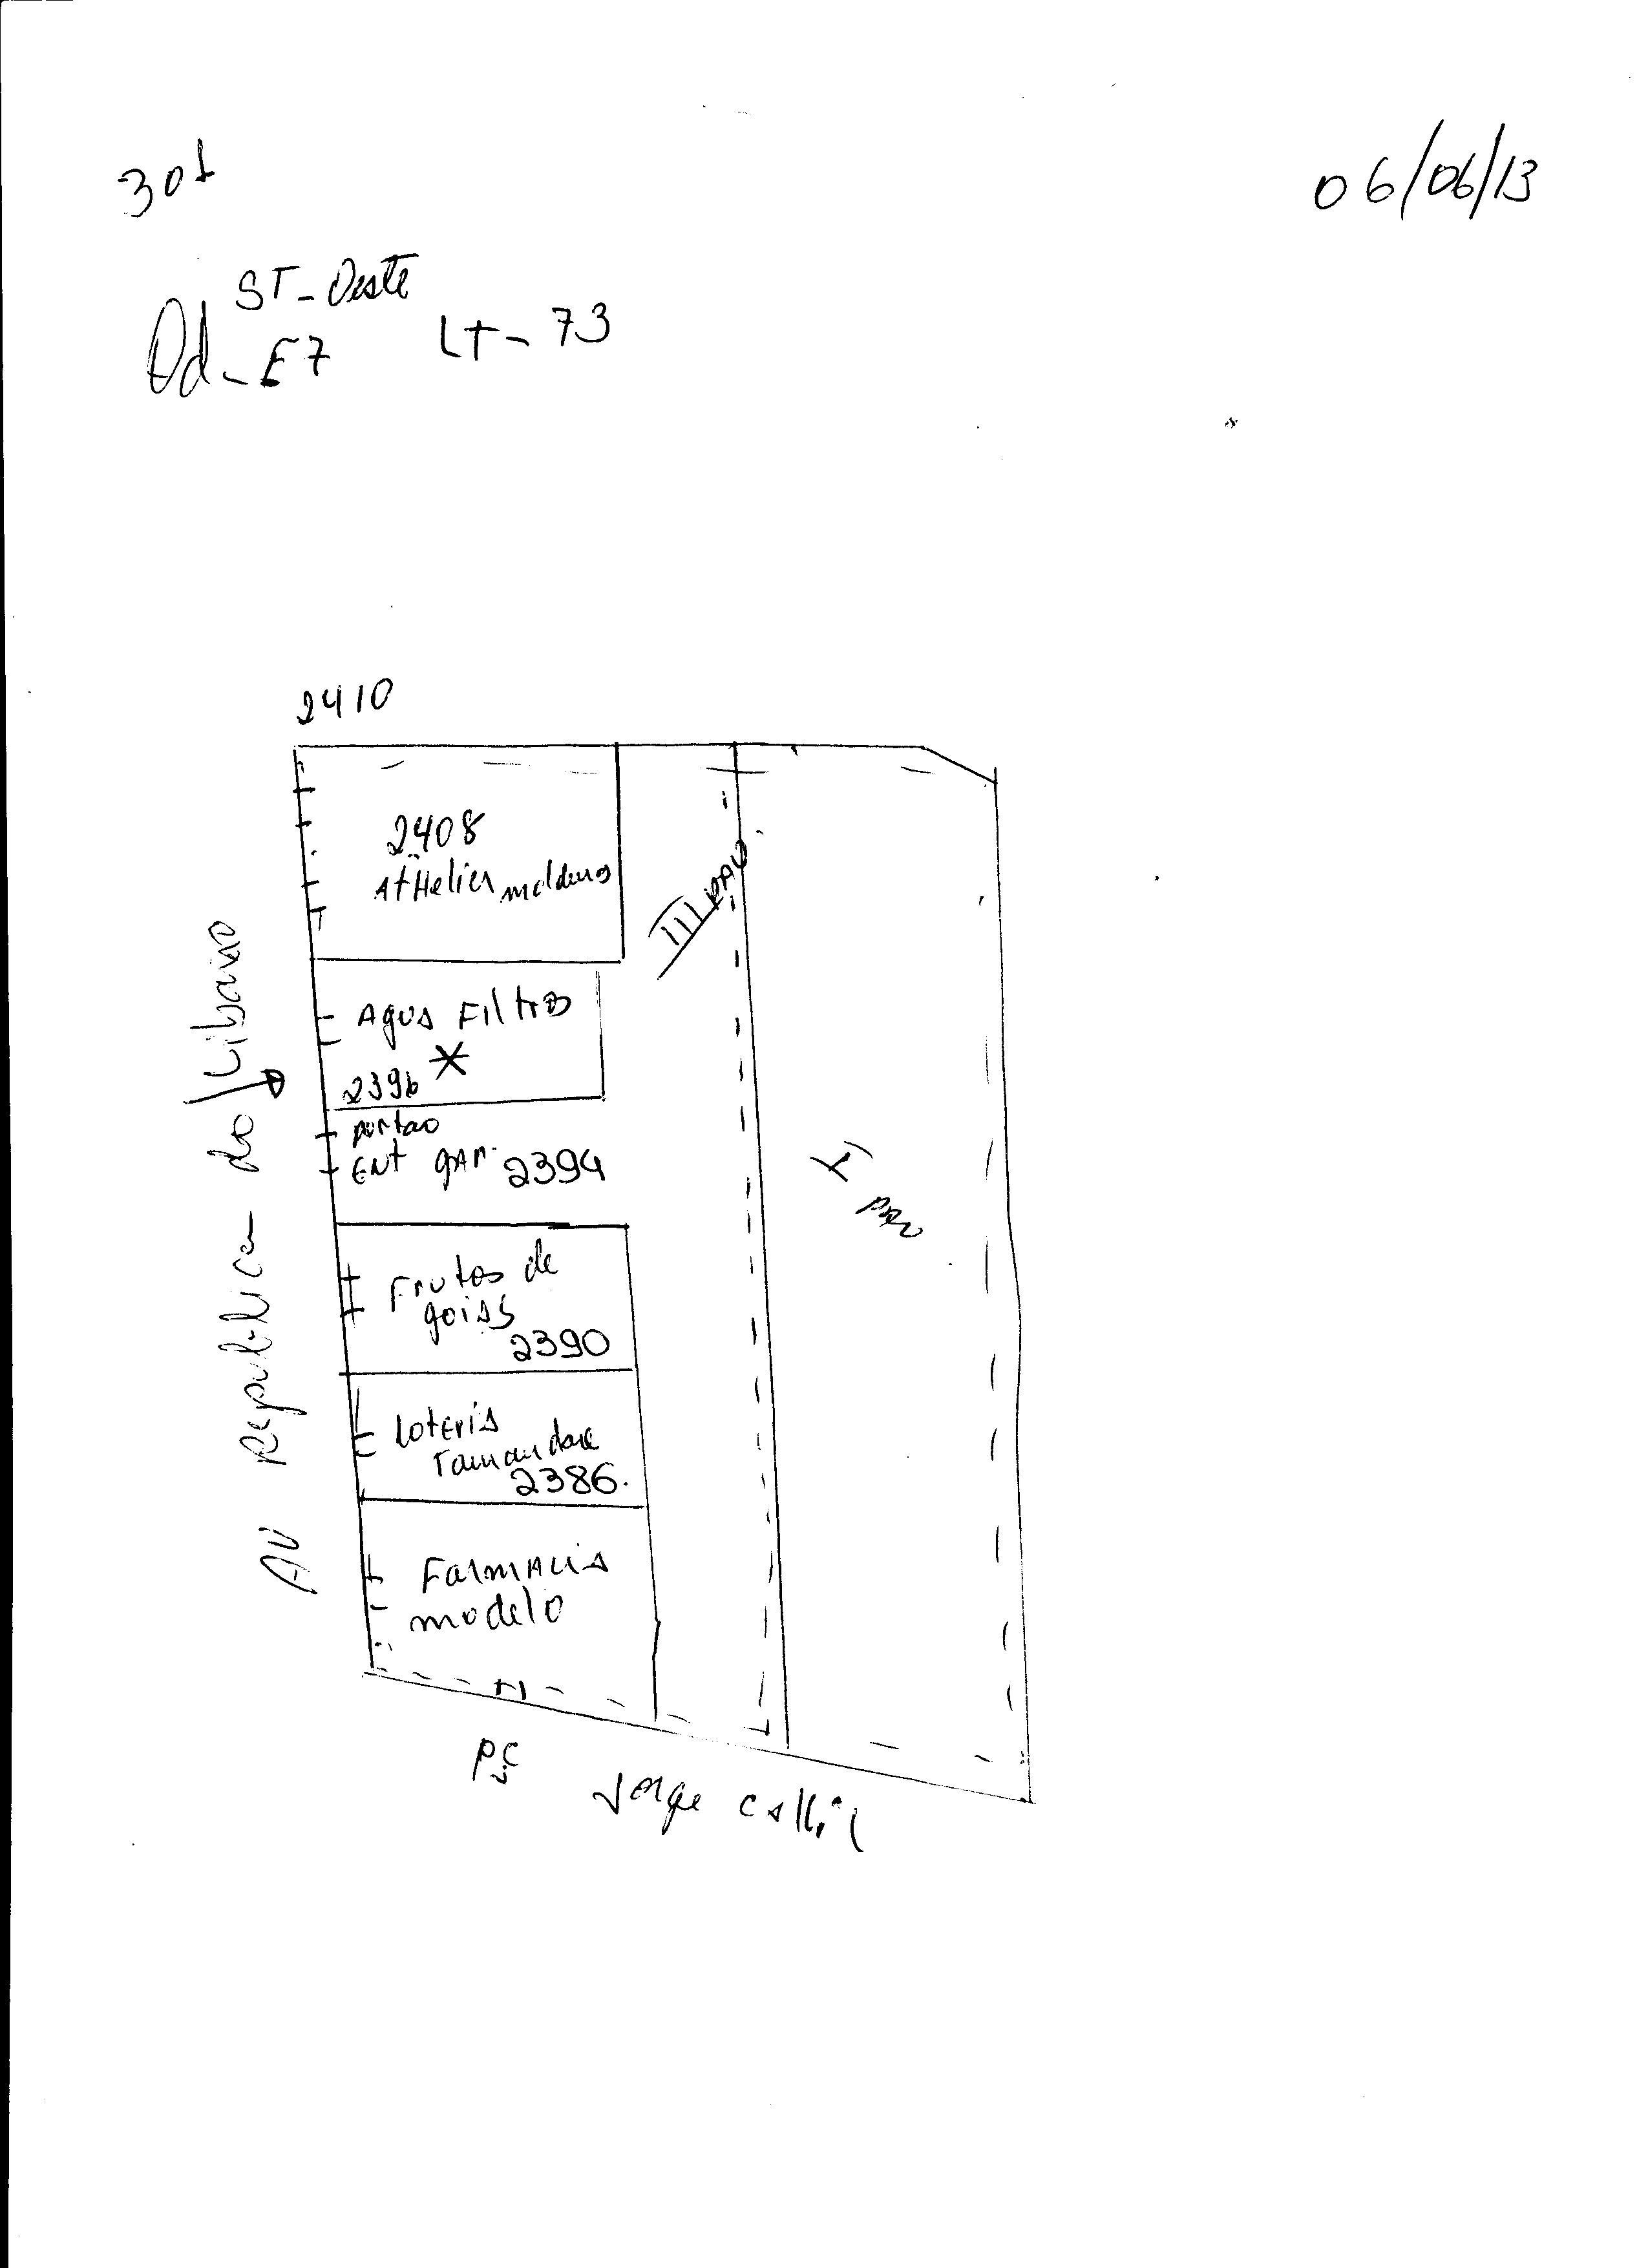 301
06/06/13
ST-Oeste
Qd-E7 LT-73
2410
2408
AtHelier
III PAV
Agua Filtro
2396
portao
Ent gar. 2394
I pav
Frutos de
goias
2390
Loteria
Tamandare
2386.
Farmacia
modelo
AV Republica do Libano
Jorge